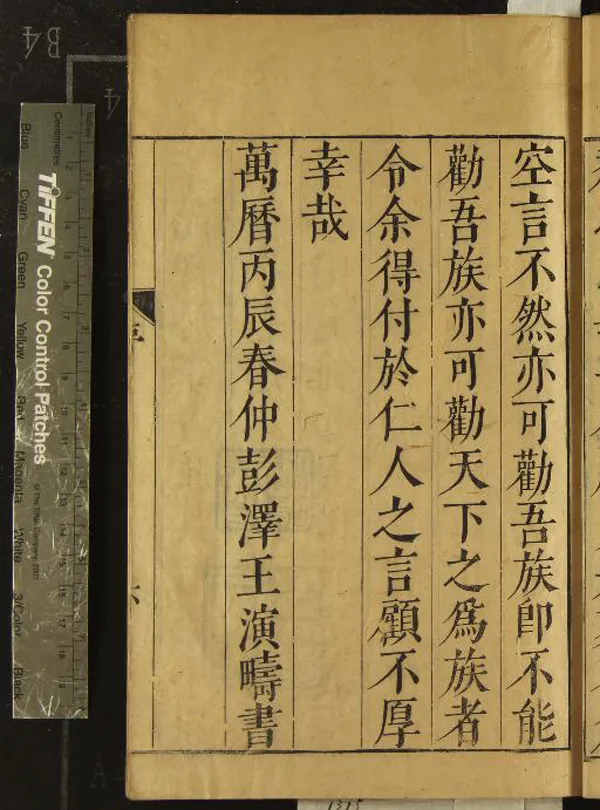 空言不然亦可勸吾族即不能
勸吾族亦可勸天下之爲族者
令余得付於仁人之言顧不厚
幸哉
萬曆丙辰春仲彭澤王演疇書
序
六
B4
4
Inches
Centimetres
TIFFEN Color Control Patches
© The Tiffen Company, 2007
Blue
Cyan
Green
Yellow
Red
Magenta
White
3/Color
Black
1315